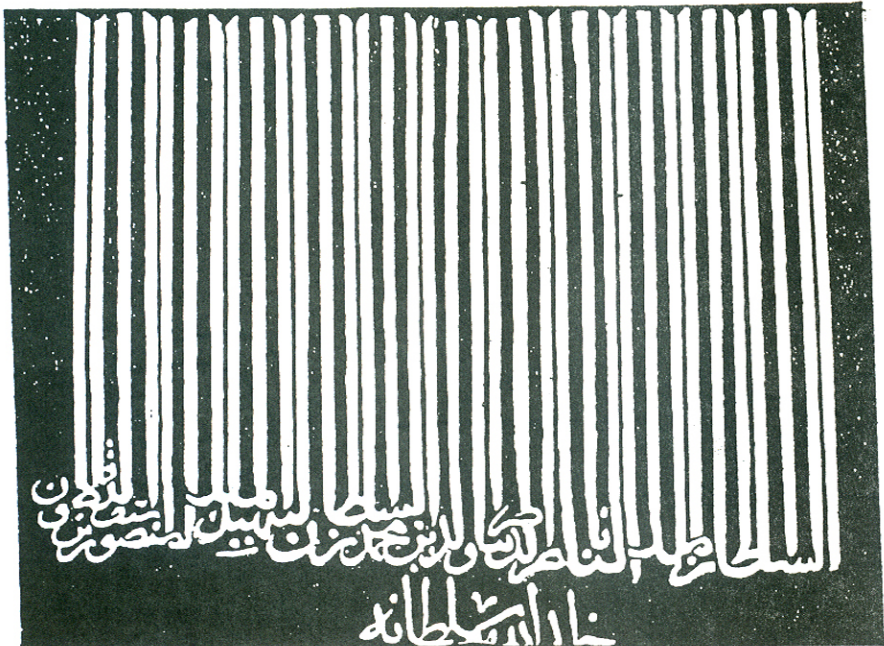 السلطان الملك الناصر الدنيا والدين محمد بن السلطان الشهيد الملك المنصور سيف الدين قلاون
خلد الله سلطانه